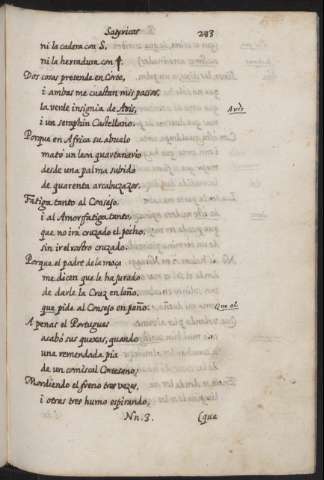 Satyricas 243
ni la cadena con S,
ni la herradura con †.
Dos cosas pretende en Corte,
i ambas me cuestan mis passos,
la verde insignia de Avis,
Avis
i un seraphin Castellano.
Porque en Africa su abuelo
mató un leon quartanario
desde una palma subido
de quarenta arcabuzazos.
Fatiga tanto al Consejo,
i al Amor fatiga tanto,
que no irá cruzado el pecho,
sin ir el rostro cruzado.
Porque el padre de la moça
me dicen que le ha jurado
de darle la Cruz en
que pide al Consejo en paño.
A penas el Portugues
acabó sus quexas, quando
una remendada pia
de un comiscal Cortesano,
Mordiendo el freno tres vezes,
i otras tres humo espirando,
Nn. 3.
(que